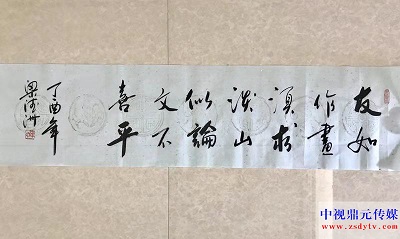 友如
作畫
須求
淡山
似論
文不
喜平
丁酉年
中视鼎元传媒
www.zsdytv.com